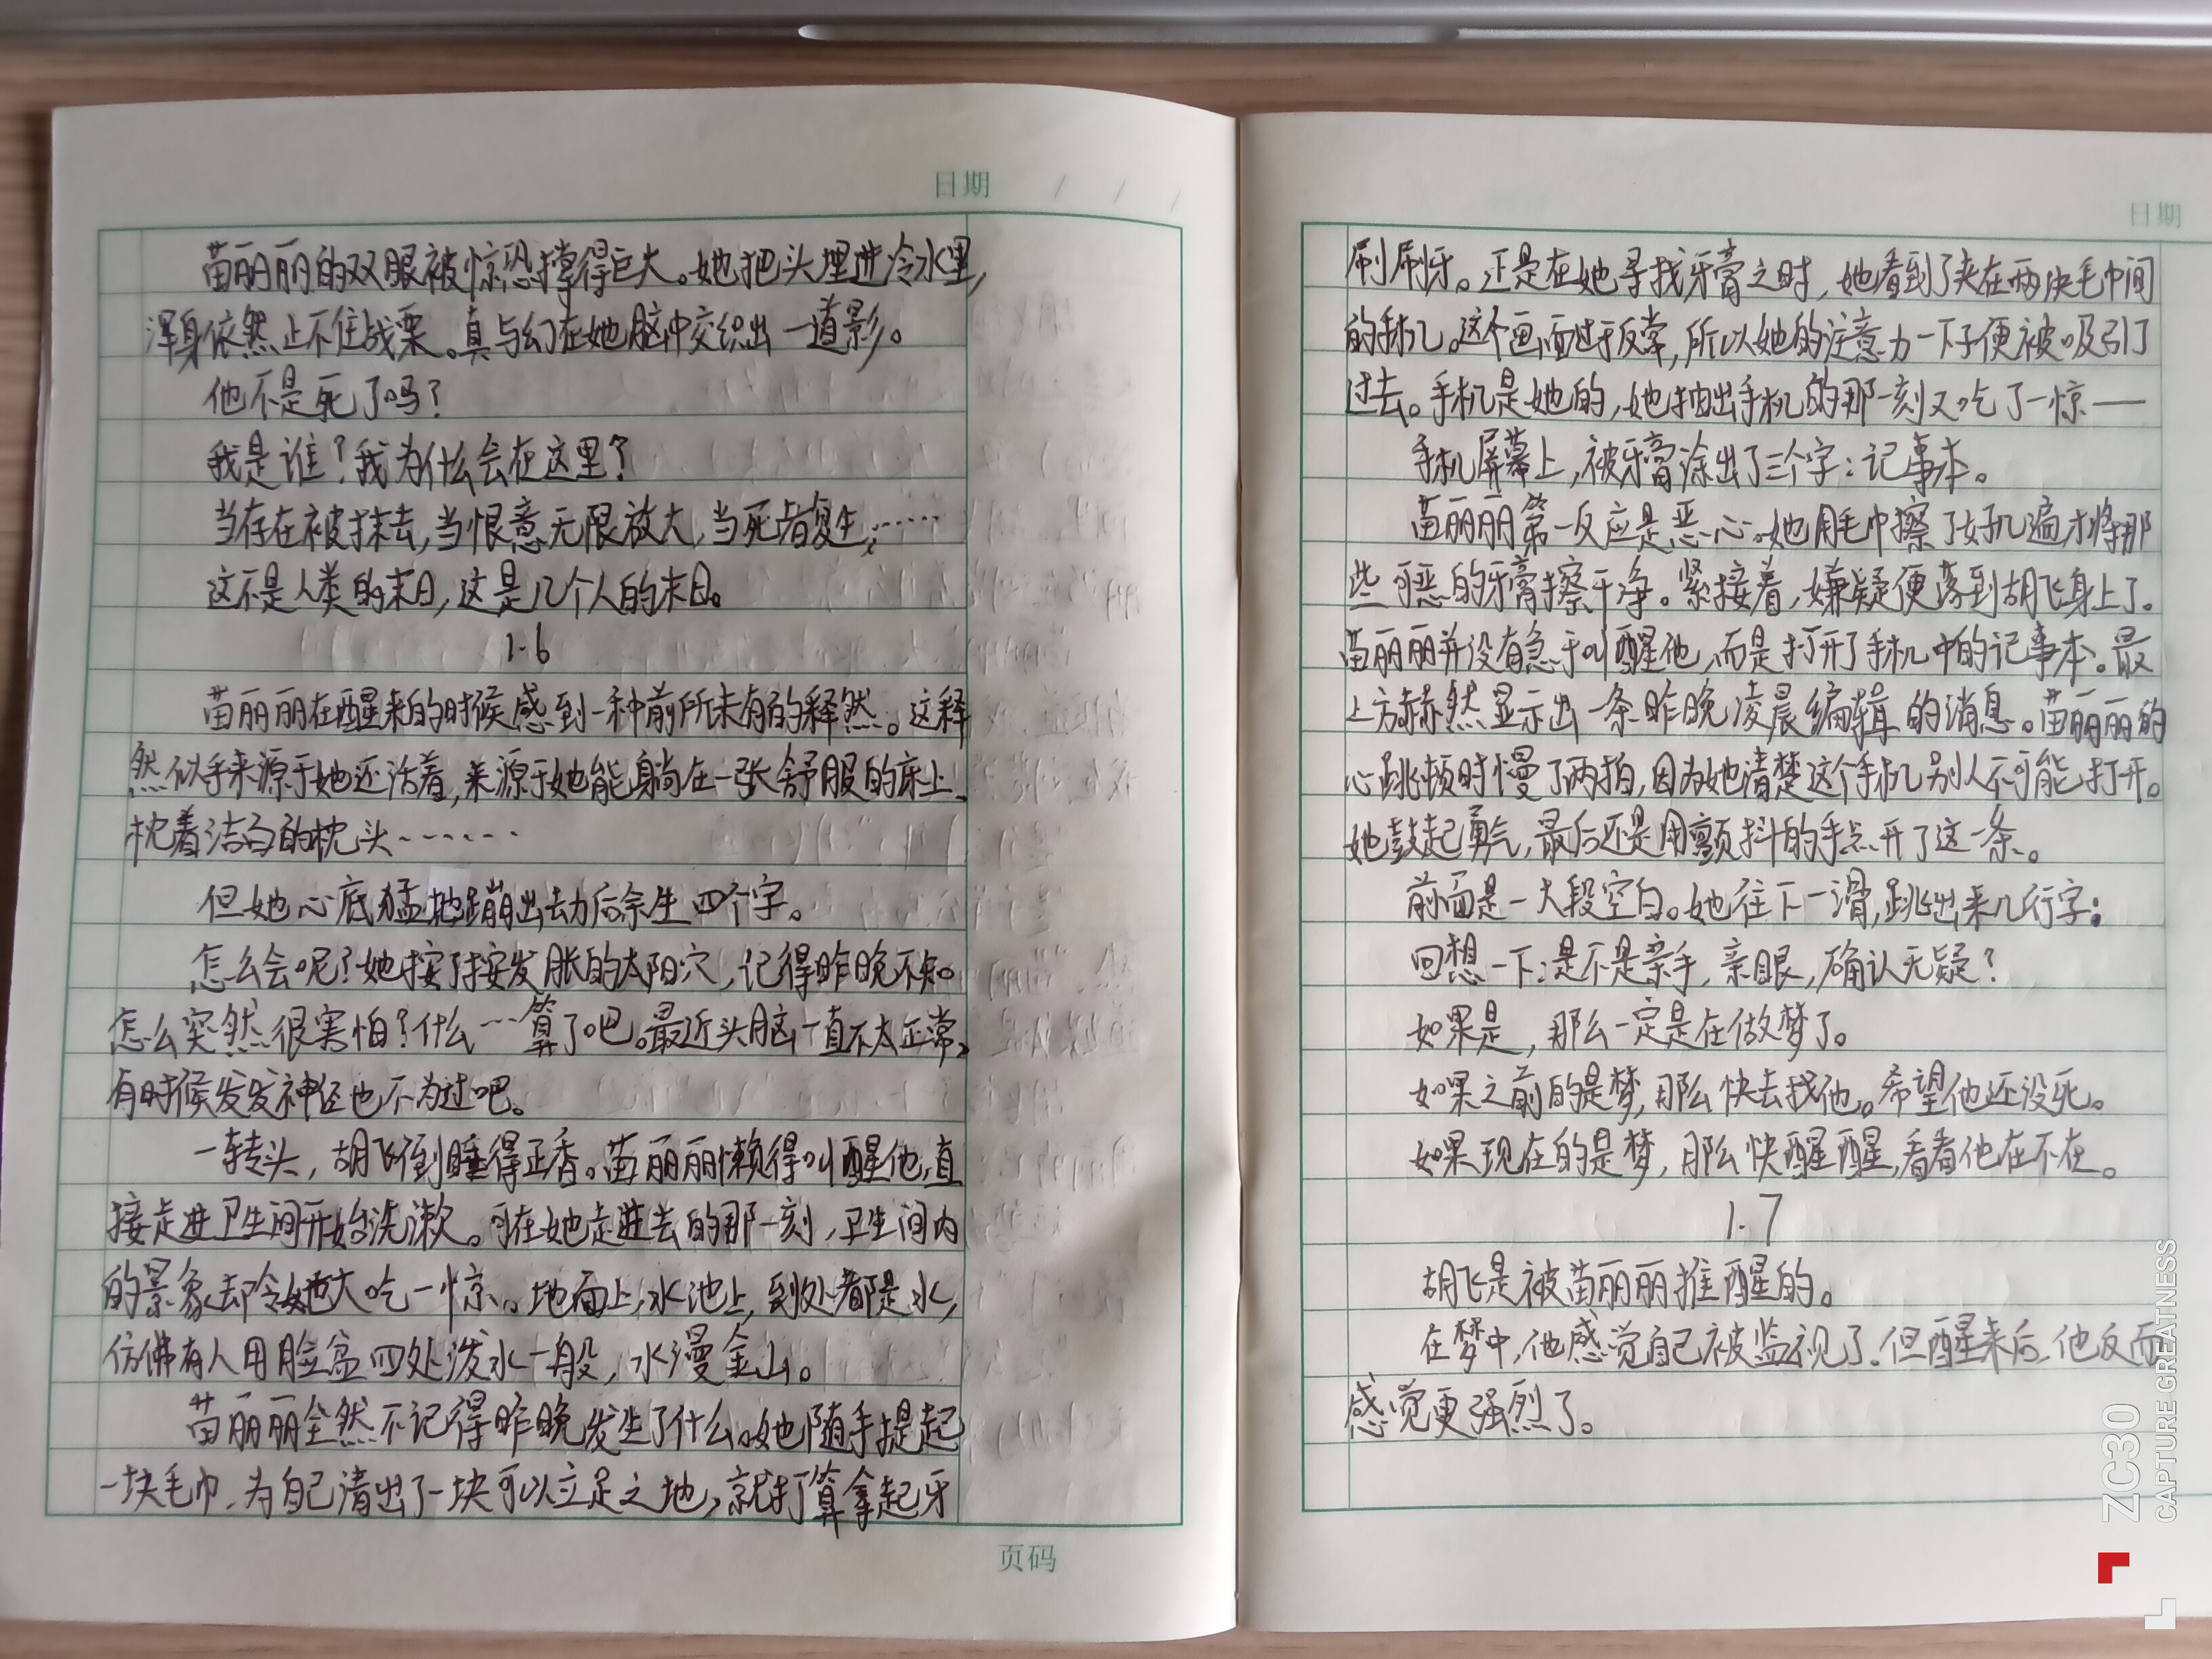 日期 / / /
苗丽丽的双眼被惊恐撑得巨大。她把头埋进冷水里,
浑身依然止不住战栗。真与幻在她脑中交织出一道影。
他不是死了吗?
我是谁?我为什么会在这里?
当存在被抹去,当恨意无限放大,当死者复生……
这不是人类的末日,这是几个人的末日。
1.6
苗丽丽在醒来的时候感到一种前所未有的释然。这释
然似乎来源于她还活着,来源于她能躺在一张舒服的床上、
枕着洁白的枕头……
但她心底猛地蹦出劫后余生四个字。
怎么会呢?她按了按发胀的太阳穴,记得昨晚不知
怎么突然很害怕?什么…算了吧。最近头脑一直不太正常,
有时候发发神经也不为过吧。
一转头,胡飞倒睡得正香。苗丽丽懒得叫醒他,直
接走进卫生间开始洗漱。可在她走进去的那一刻,卫生间内
的景象却令她大吃一惊。地面上,水池上,到处都是水,
仿佛有人用脸盆四处泼水一般,水漫金山。
苗丽丽全然不记得昨晚发生了什么。她随手提起
一块毛巾,为自己清出了一块可以立足之地,就打算拿起牙
页码
日期
刷刷牙。正是在她寻找牙膏之时,她看到了夹在两块毛巾间
的手机。这个画面过于反常,所以她的注意力一下子便被吸引了
过去。手机是她的,她抽出手机的那一刻又吃了一惊——
手机屏幕上,被牙膏涂出了三个字:记事本。
苗丽丽第一反应是恶心。她用毛巾擦了好几遍才将那
些可恶的牙膏擦干净。紧接着,嫌疑便落到胡飞身上了。
苗丽丽并没有急于叫醒他,而是打开了手机中的记事本。最
上方赫然显示出一条昨晚凌晨编辑的消息。苗丽丽的
心跳顿时慢了两拍,因为她清楚这个手机别人不可能打开。
她鼓起勇气,最后还是用颤抖的手点开了这一条。
前面是一大段空白。她往下一滑,跳出来几行字:
回想一下:是不是亲手,亲眼,确认无疑?
如果是,那么一定是在做梦了。
如果之前的是梦,那么快去找他。希望他还没死。
如果现在的是梦,那么快醒醒,看看他在不在。
1.7
胡飞是被苗丽丽推醒的。
在梦中,他感觉自己被监视了。但醒来后,他反而
感觉更强烈了。
ZC30
CAPTURE GREATNESS